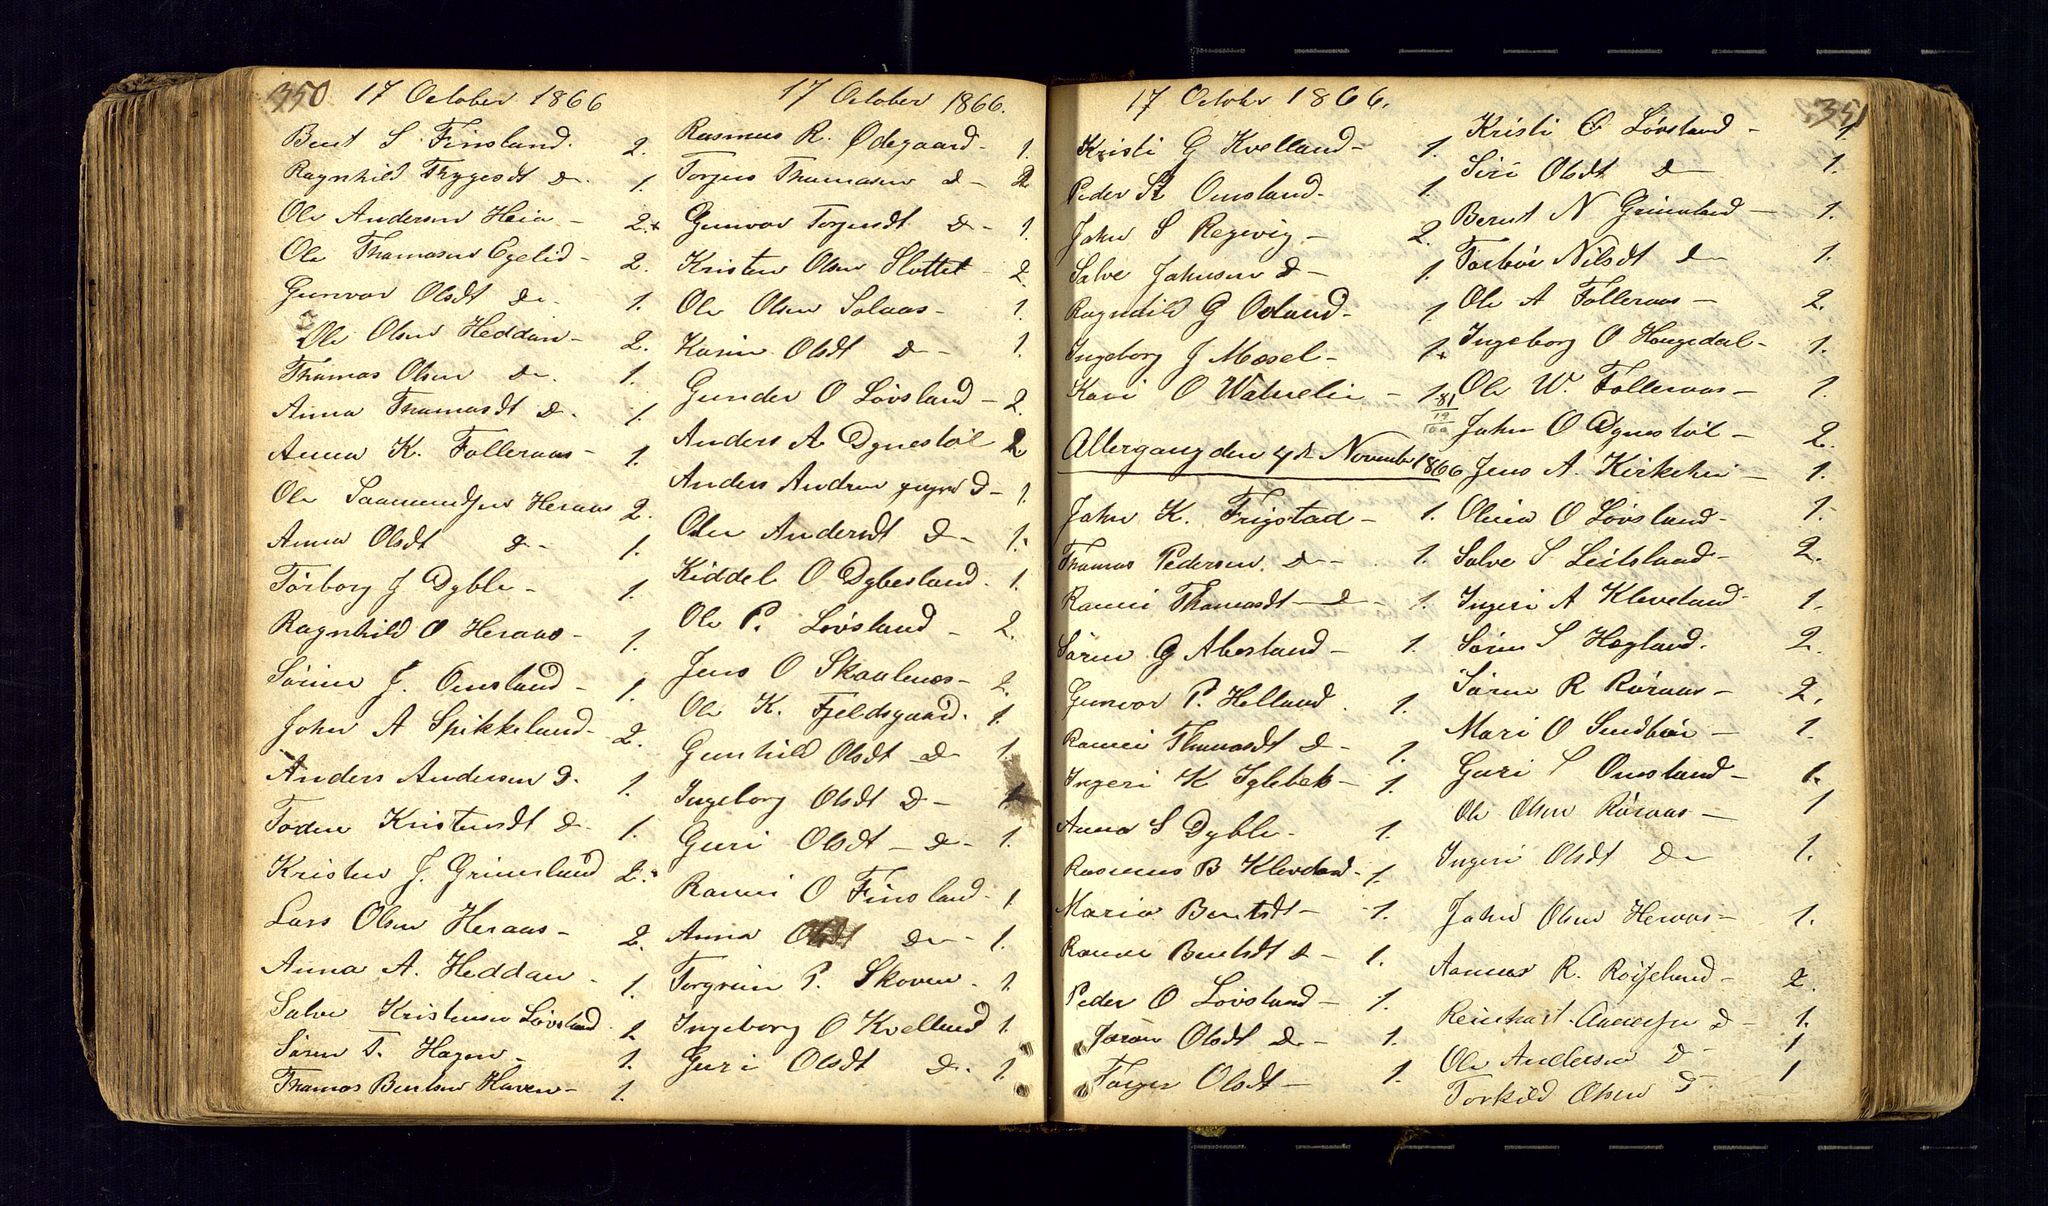 350 17 October 1866
Bent S Finsland. 2.
Ragnhild Thygesdt do. 1.
Ole Andersen Heia - 2.
Ole Thomasen Egelid - 2.
Gunvor Olsdt do. 1.
Ole Olsen Heddan - 2.
Thomas Olsen do. 1.
Anna Thomasdt do. 1.
Anna K. Folleraas - 1.
Ole Saamundsen Heraas 2.
Anna Olsdt do - 1.
Torborg J Dyble - 1.
Ragnhild O Heraas - 1.
Sørine J. Omsland - 1.
John A Spikkeland - 2.
Anders Andersen do. 1.
Todne Kristensdt do. 1.
Kristen J. Grimsland 2.
Lars Olsen Heraas - 2.
Anna A. Heddan - 1.
Salve Kristensen Løvsland 1
Søren T. Hagen - 1.
Thomas Bentsen Haven - 1.
17 October 1866.
Rasmus R. Ødegaard - 1.
Torjus Thomasen do - 2
Gunvor Torjusdt do - 1.
Kristen Olsen Slottet - 2.
Ole Olsen Solaas - 1.
Karen Olsdt do - 1.
Gunder O Løvsland - 2.
Anders A Dynestøl 2
Anders Andersen yngre do - 1.
Andersdt do - 1.
Kiddel O Dybesland. 1.
Ole P. Løvsland - 2.
Jens O Skaalenes - 2.
Ole K. Fjeldsgaard. 1.
Gunhild Olsdt do 1.
Ingeborg Olsdt do - 1.
Guri Olsdt - do - 1.
Rannei O Finsland - 1
Anna Olsdt do - 1.
Torgrim P. Skoven. 1.
Ingeborg O Kvelland 1.
Guri Olsdt do. 1.
17 October 1866.
Kristi G Kvelland - 1.
Peder K Omsland - 1
John S Regevig - 2.
Salve Johnsen do - 1.
Ragnhild G Osland - 1
Ingeborg J Mosel - 1.
Kari O Watnelin - 1
81
19
100
Altergang den 4de November 1866
John K. Frigstad - 1.
Thomas Pedersen. do - 1.
Rannei Thomasdt do - 1.
Søren G Abesland - 1.
Gunvor P. Helland. 1.
Rannei Thomasdt do - 1.
Ingeri K Iglebek - 1.
Anna S Dyble - 1.
Rasmus B Klevland - 1.
Maria Bentsdt - 1.
Rannei Bentsdt do - 1.
Peder O Løvsland - 1.
Joran Olsdt do - 1.
Olsdt - 1.
351
Kristi O Løvsland - 1
Siri Olsdt do - 1.
Bernt N Grimsland - 1.
Torbør Nilsdt do - 1.
Ole A Folleraas - 2.
Ingeborg O Haugedal - 1.
Ole W. Folleraas - 1.
John O Dynestøl - 2.
Jens A. Kirkehei - 1.
Olina O Løvsland - 1.
Salve S Leilsland - 2.
Ingeri A Kleveland - 1.
Søren S Høgland. 2.
Søren R Røraas - 2.
Mari O Sundbøe - 1.
Guri S Omsland - 1.
Ole Olsen Røraas - 1
Ingeri Olsdt do 1.
John Olsen Heraas - 1.
Aanas R. Røiseland - 2.
Reinhart Andersen do - 1.
Ole Andersen do - 1
Torkild Olsen do 1